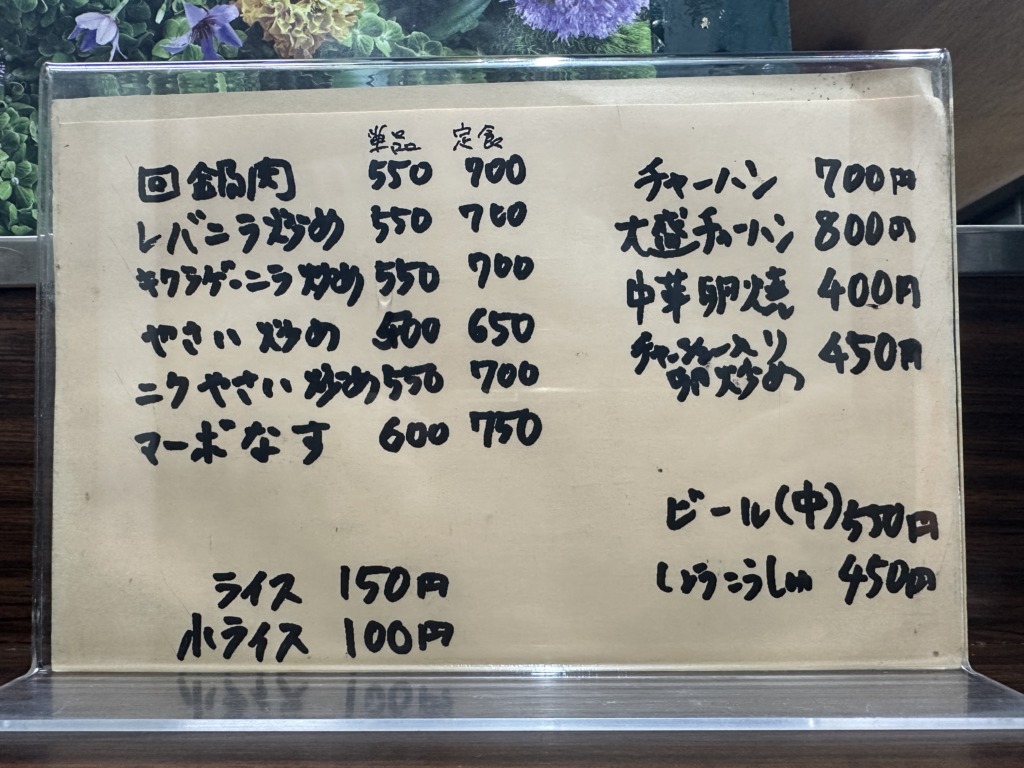 単品 定食
回鍋肉 550 700
レバニラ炒め 550 700
キクラゲ・ニラ炒め 550 700
やさい炒め 500 650
ニクやさい炒め 550 700
マーボなす 600 750
ライス 150円
小ライス 100円
チャーハン 700円
大盛チャーハン 800円
中華卵焼 400円
チャーシュー入り 450円
卵炒め
ビール(中) 550円
しょうこうしゅ 450円